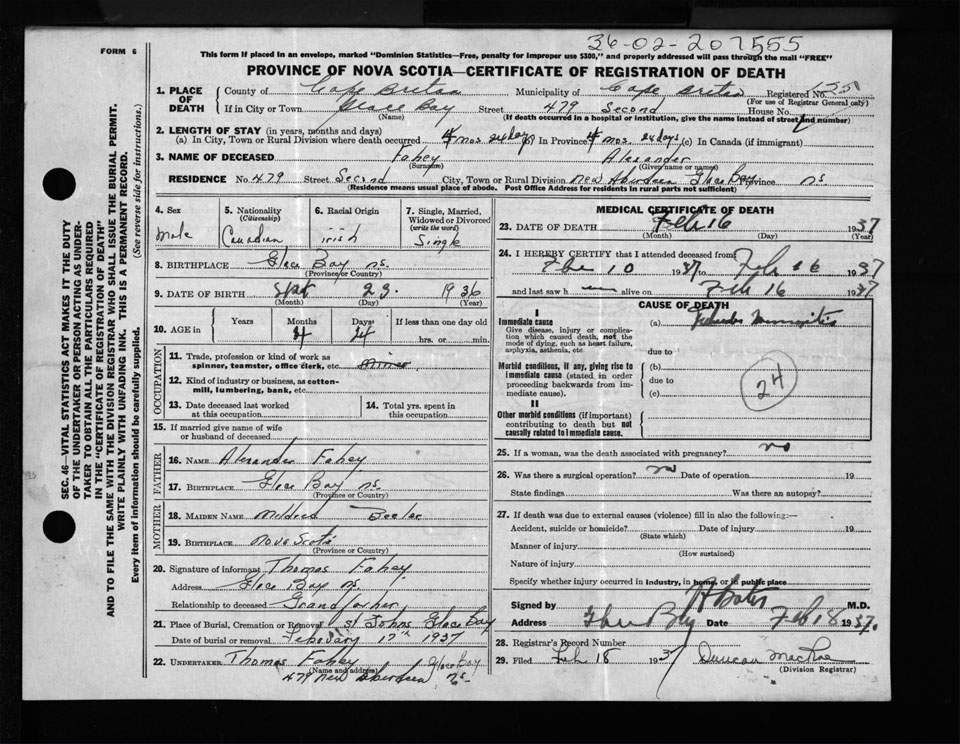 FORM 6
36-02-207555
This form if placed in an envelope, marked "Dominion Statistics—Free, penalty for improper use $300," and properly addressed will pass through the mail "FREE"
PROVINCE OF NOVA SCOTIA—CERTIFICATE OF REGISTRATION OF DEATH
1. PLACE OF DEATH
County of Cape Breton Municipality of Cape Breton Registered No.
(For use of Registrar General only)
If in City or Town Glace Bay Street 479 Second House No.
(Name) (If death occurred in a hospital or institution, give the name instead of street and number)
2. LENGTH OF STAY (in years, months and days)
(a) In City, Town or Rural Division where death occurred 4 mos 24 days (b) In Province 4 mos. 24 days (c) In Canada (if immigrant)
3. NAME OF DECEASED Fahey Alexander
(Surname) (Given name or names)
RESIDENCE No. 479 Street Second City, Town or Rural Division New Aberdeen Glace Bay Province NS
(Residence means usual place of abode. Post Office Address for residents in rural parts not sufficient)
4. Sex
Male
5. Nationality
(Citizenship)
Canadian
6. Racial Origin
Irish
7. Single, Married, Widowed or Divorced
(write the word)
Single
8. BIRTHPLACE Glace Bay NS.
(Province or Country)
9. DATE OF BIRTH Sept 23. 1936
(Month) (Day) (Year)
10. AGE in
Years Months Days If less than one day old
4 24 hrs. or min.
OCCUPATION
11. Trade, profession or kind of work as spinner, teamster, office clerk, etc. Minor
12. Kind of industry or business, as cotton-mill, lumbering, bank, etc.
13. Date deceased last worked at this occupation
14. Total yrs. spent in this occupation
15. If married give name of wife or husband of deceased
FATHER
16. NAME Alexander Fahey
17. BIRTHPLACE Glace Bay NS.
(Province or Country)
MOTHER
18. MAIDEN NAME Mildred Beeler
19. BIRTHPLACE Nova Scotia
(Province or Country)
20. Signature of informant Thomas Fahey
Address Glace Bay NS.
Relationship to deceased Grandfather
21. Place of Burial, Cremation or Removal St Johns Glace Bay
Date of burial or removal February 17th 1937
22. UNDERTAKER Thomas Fahey Glace Bay
(Name and address)
479 New Aberdeen NS.
MEDICAL CERTIFICATE OF DEATH
23. DATE OF DEATH Feb 16 1937
(Month) (Day) (Year)
24. I HEREBY CERTIFY that I attended deceased from
Feb 10 1937 to Feb 16 1937
and last saw h alive on Feb 16 1937
CAUSE OF DEATH
I
Immediate cause
Give disease, injury or complication which caused death, not the mode of dying, such as heart failure, asphyxia, asthenia, etc
(a)
due to
Morbid conditions, if any, giving rise to immediate cause (stated in order proceeding backwards from immediate cause).
(b)
due to
(c)
24
II
Other morbid conditions (if important) contributing to death but not causally related to immediate cause.
25. If a woman, was the death associated with pregnancy? no
26. Was there a surgical operation? no Date of operation 19
State findings Was there an autopsy?
27. If death was due to external causes (violence) fill in also the following:—
Accident, suicide or homicide? Date of injury 19
(State which)
Manner of injury
(How sustained)
Nature of injury
Specify whether injury occurred in industry, in home, or in public place
Signed by M.D.
Address Glace Bay Date Feb 18 1937.
28. Registrar's Record Number
29. Filed Feb 18 1937 Duncan MacRae
(Division Registrar)
SEC. 46—VITAL STATISTICS ACT MAKES IT THE DUTY OF THE UNDERTAKER OR PERSON ACTING AS UNDERTAKER TO OBTAIN ALL THE PARTICULARS REQUIRED IN THE "CERTIFICATE OF REGISTRATION OF DEATH"
AND TO FILE THE SAME WITH THE DIVISION REGISTRAR WHO SHALL ISSUE THE BURIAL PERMIT.
WRITE PLAINLY WITH UNFADING INK. THIS IS A PERMANENT RECORD.
Every item of information should be carefully supplied. (See reverse side for instructions.)